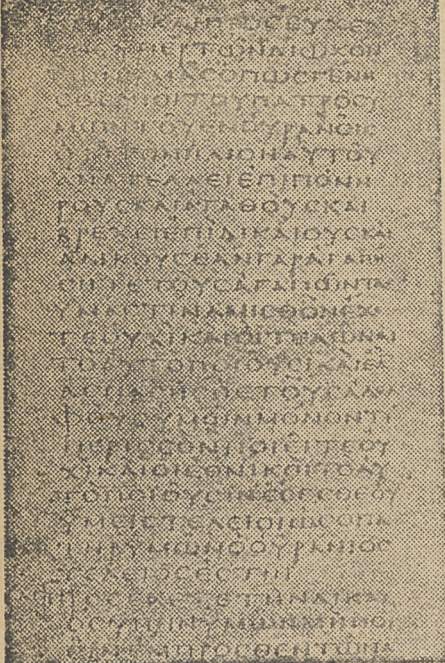 ΚΑΙΠΡΟϹΕΥΧΕϹ
ΥΠΕΡΤΩΝΔΙΩΚΟΝ
ΥΜΑϹΟΠΩϹΓΕΝΗ
ϹΘΕΥΙΟΙΤΟΥΠΑΤΡΟϹΥ
ΜΩΝΤΟΥΕΝΟΥΡΑΝΟΙϹ
ΟΤΙΤΟΝΗΛΙΟΝΑΥΤΟΥ
ΑΝΑΤΕΛΛΕΙΕΠΙΠΟΝΗ
ΡΟΥϹΚΑΙΑΓΑΘΟΥϹΚΑΙ
ΒΡΕΧΕΙΕΠΙΔΙΚΑΙΟΥϹΚΑΙ
ΑΔΙΚΟΥϹΕΑΝΓΑΡΑΓΑΠΗ
ϹΗΤΕΤΟΥϹΑΓΑΠΩΝΤΑ
ΥΜΑϹΤΙΝΑΜΙϹΘΟΝΕΧΕ
ΤΕΟΥΧΙΚΑΙΟΙΤΕΛΩΝΑΙ
ΤΟΑΥΤΟΠΟΙΟΥϹΙΚΑΙΕΑ
ΑϹΠΑϹΗϹΘΕΤΟΥϹΑΔΕΛ
ΦΟΥϹΥΜΩΝΜΟΝΟΝΤΙ
ΠΕΡΙϹϹΟΝΠΟΙΕΙΤΕΟΥ
ΧΙΚΑΙΟΙΕΘΝΙΚΟΙΤΟΑΥ
ΤΟΠΟΙΟΥϹΙΝΕϹΕϹΘΕΟΥ
ΥΜΕΙϹΤΕΛΕΙΟΙΩϹΟΠΑ
ΤΗΡΥΜΩΝΟΟΥΡΑΝΙΟϹ
ΤΕΛΕΙΟϹΕϹΤΙΝ
ΠΡΟϹΕΧΕΤΕΤΗΝΔΙΚΑΙ
ΟϹΥΝΗΝΥΜΩΝΜΗΠΟΙ
ΕΜΠΡΟϹΘΕΝΤΩΝΑ